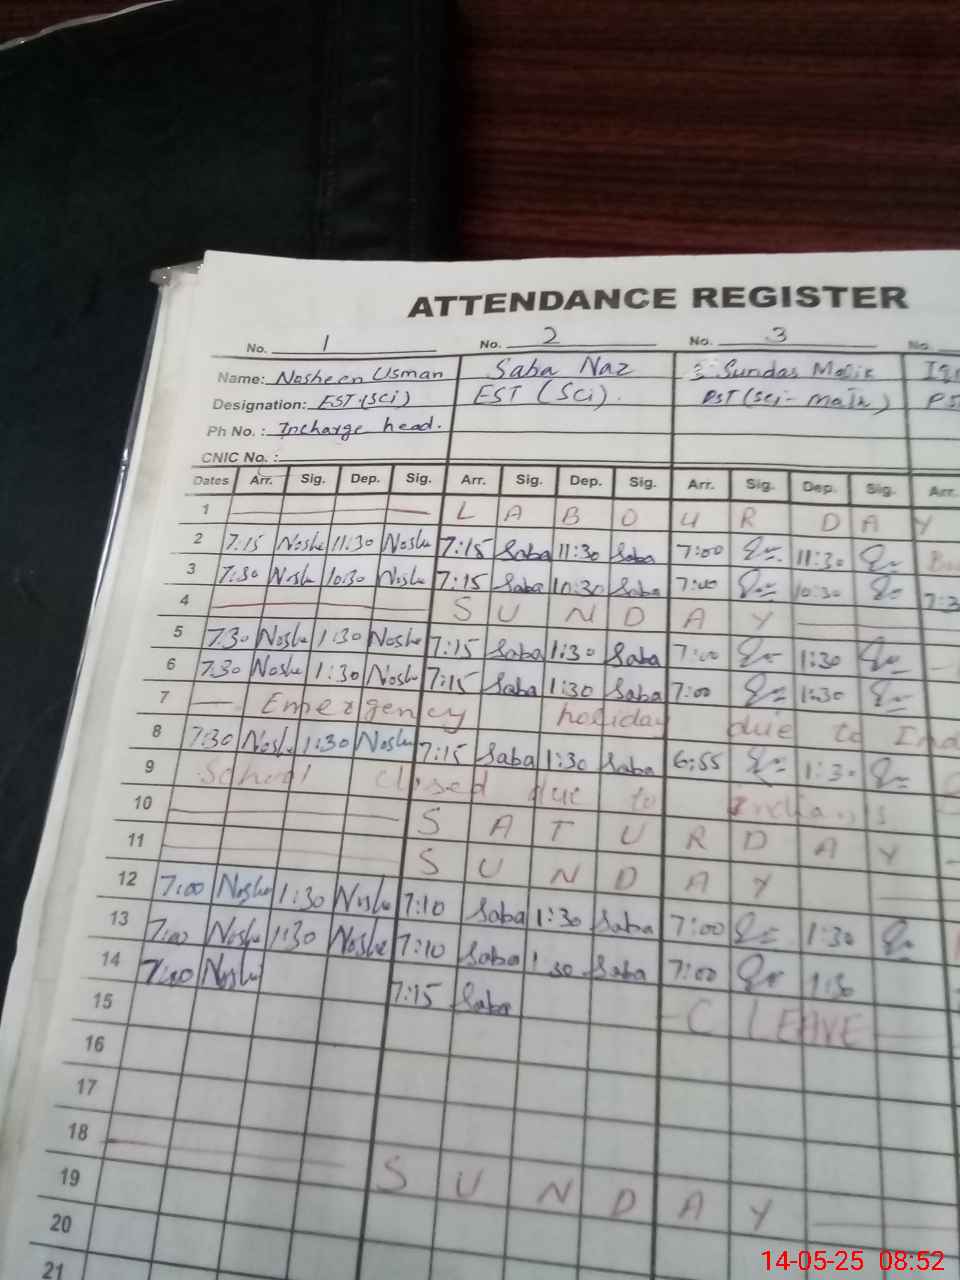 ATTENDANCE REGISTER
No. 1 No. 2 No. 3 No.
Name: Nosheen Usman Saba Naz Sundas Malik
Designation: EST (Sci) EST (Sci). PST (Sci-Math)
Ph No. : Incharge head.
CNIC No. :
Dates Arr. Sig. Dep. Sig. Arr. Sig. Dep. Sig. Arr. Sig. Dep. Sig. Arr.
1 LABOUR DAY
2 7:15 Noshe 11:30 Noshe 7:15 Saba 11:30 Saba 7:00 11:30
3 7:30 Noshe 10:30 Noshe 7:15 Saba 10:30 Saba 7:00 10:30
4 SUNDAY
5 7:30 Noshe 1:30 Noshe 7:15 Saba 1:30 Saba 7:00 1:30
6 7:30 Noshe 1:30 Noshe 7:15 Saba 1:30 Saba 7:00 1:30
7 Emergency holiday due to
8 7:30 Noshe 1:30 Noshe 7:15 Saba 1:30 Saba 6:55 1:30
9 School closed due to
10 SATURDAY
11 SUNDAY
12 7:00 Noshe 1:30 Noshe 7:10 Saba 1:30 Saba 7:00 1:30
13 7:00 Noshe 1:30 Noshe 7:10 Saba 1:30 Saba 7:00 1:30
14 7:00 Noshe 7:15 Saba C LEAVE
15
16
17
18 SUNDAY
19
20
21
14-05-25 08:52